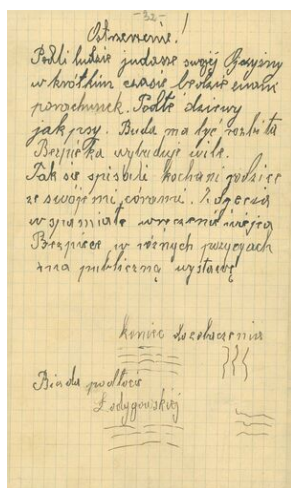 -32-
Ostrzerzenie!
Podli ludzie judasze swojej Ojczyzny
w krótkim czasie będzie z wami
porachunek. Podłe dziewy
jak psy. Buda ma być rozbita
Bezpieka wybuduje wile.
Tak się spisali kochani rodzice
ze swojemi córami. Zdjęcia
wspaniałe wręczenie
Bezpiece w różnych pozycjach
na publiczną wystawę
koniec
Biada podłocie
Ładygowskiej